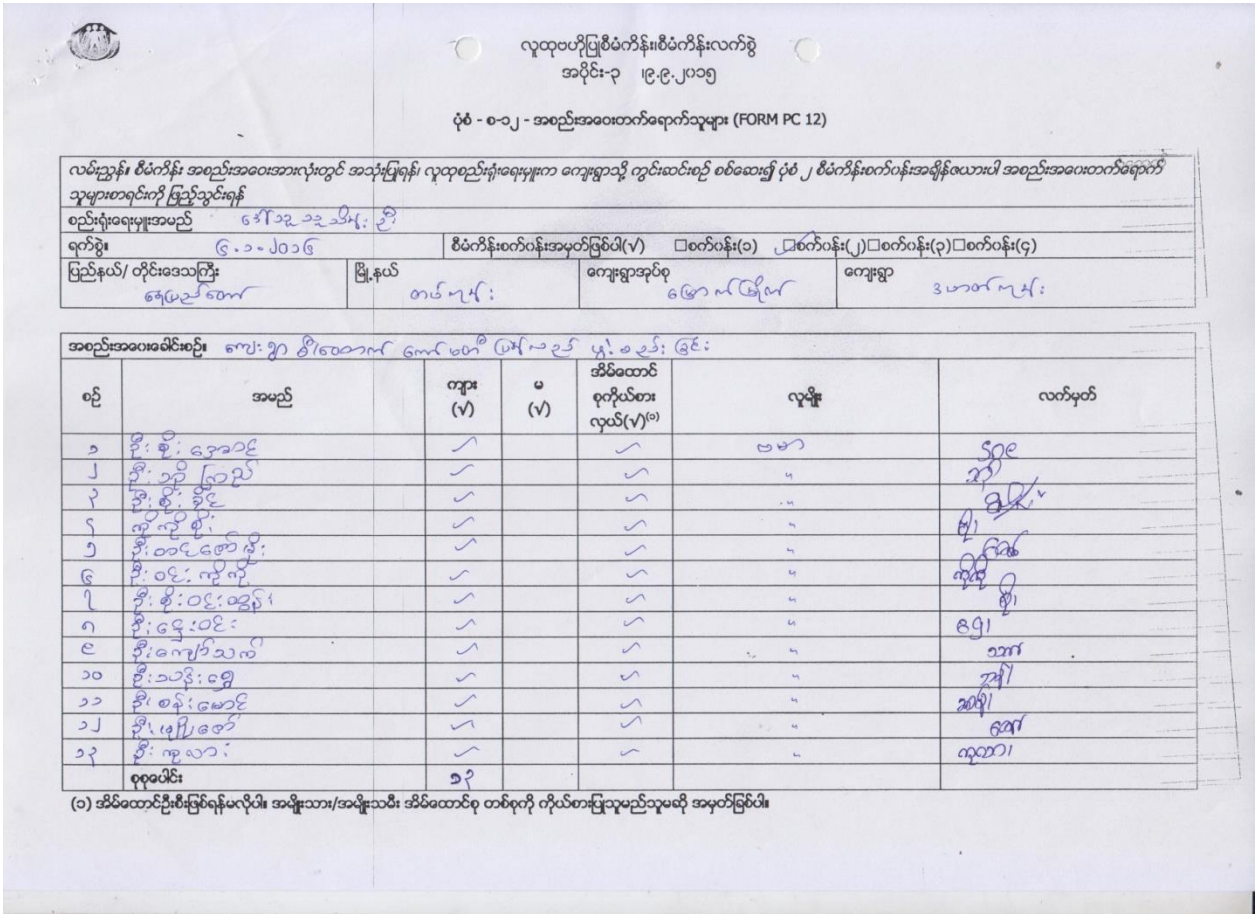 လူထုဗဟိုပြုစီမံကိန်း၊စီမံကိန်းလက်စွဲ
အပိုင်း-၃ ၊၉.၉.၂၀၁၅
ပုံစံ - စ-၁၂ - အစည်းအဝေးတက်ရောက်သူများ (FORM PC 12)
လမ်းညွှန်။ စီမံကိန်း အစည်းအဝေးအားလုံးတွင် အသုံးပြုရန်၊ လူထုစည်းရုံးရေးမှူးက ကျေးရွာသို့ ကွင်းဆင်းစဉ် စစ်ဆေး၍ ပုံစံ ၂ စီမံကိန်းစက်ပန်းအချိန်ဇယားပါ အစည်းအဝေးတက်ရောက်
သူများစာရင်းကို ဖြည့်သွင်းရန်
စည်းရုံးရေးမှူးအမည်
ရက်စွဲ။ ၆.၁.၂၀၁၆ စီမံကိန်းစက်ဝန်းအမှတ်ဖြစ်ပါ(√) □စက်ဝန်း(၁) □စက်ဝန်း(၂)□စက်ဝန်း(၃)□စက်ဝန်း(၄)
ပြည်နယ်/ တိုင်းဒေသကြီး မြို့နယ် ကျေးရွာအုပ်စု ကျေးရွာ
နေပြည်တော် တပ်ကုန်း မြောက်မြိုက် ဒဟတ်ကုန်း
အစည်းအဝေးခေါင်းစဉ်။ ကျေးရွာ ကော်မတီ ပြန်လည် ဖွဲ့စည်းခြင်း
စဉ် အမည် ကျား (√) မ (√) အိမ်ထောင်စုကိုယ်စားလှယ်(√)⁽¹⁾ လူမျိုး လက်မှတ်
၁ ဦးစိုးအောင် ✓ ✓ ဗမာ
၂ ဦးဘိုကြည် ✓ ✓ "
၃ ဦးစိုးခိုင် ✓ ✓ "
၄ ကိုကိုစိုး ✓ ✓ " စိုး
၅ ဦးတင်ဇော်မိုး ✓ ✓ " ဇော်
၆ ဦးဝင်းကိုကို ✓ ✓ " ကိုကို
၇ ဦးစိုးဝင်းထွန်း ✓ ✓ " စိုး
၈ ဦးဌေးဝင်း ✓ ✓ "
၉ ဦးကျော်သက် ✓ ✓ "
၁၀ ဦးသန်းရွှေ ✓ ✓ "
၁၁ ဦးစန်းမောင် ✓ ✓ "
၁၂ ဦးဖျိုးဇော် ✓ ✓ " ဇော်
၁၃ ဦးကုလား ✓ ✓ " ကုလား
စုစုပေါင်း ၁၃
(၁) အိမ်ထောင်ဦးစီးဖြစ်ရန်မလိုပါ။ အမျိုးသား/အမျိုးသမီး အိမ်ထောင်စု တစ်စုကို ကိုယ်စားပြုသူမည်သူမဆို အမှတ်ခြစ်ပါ။